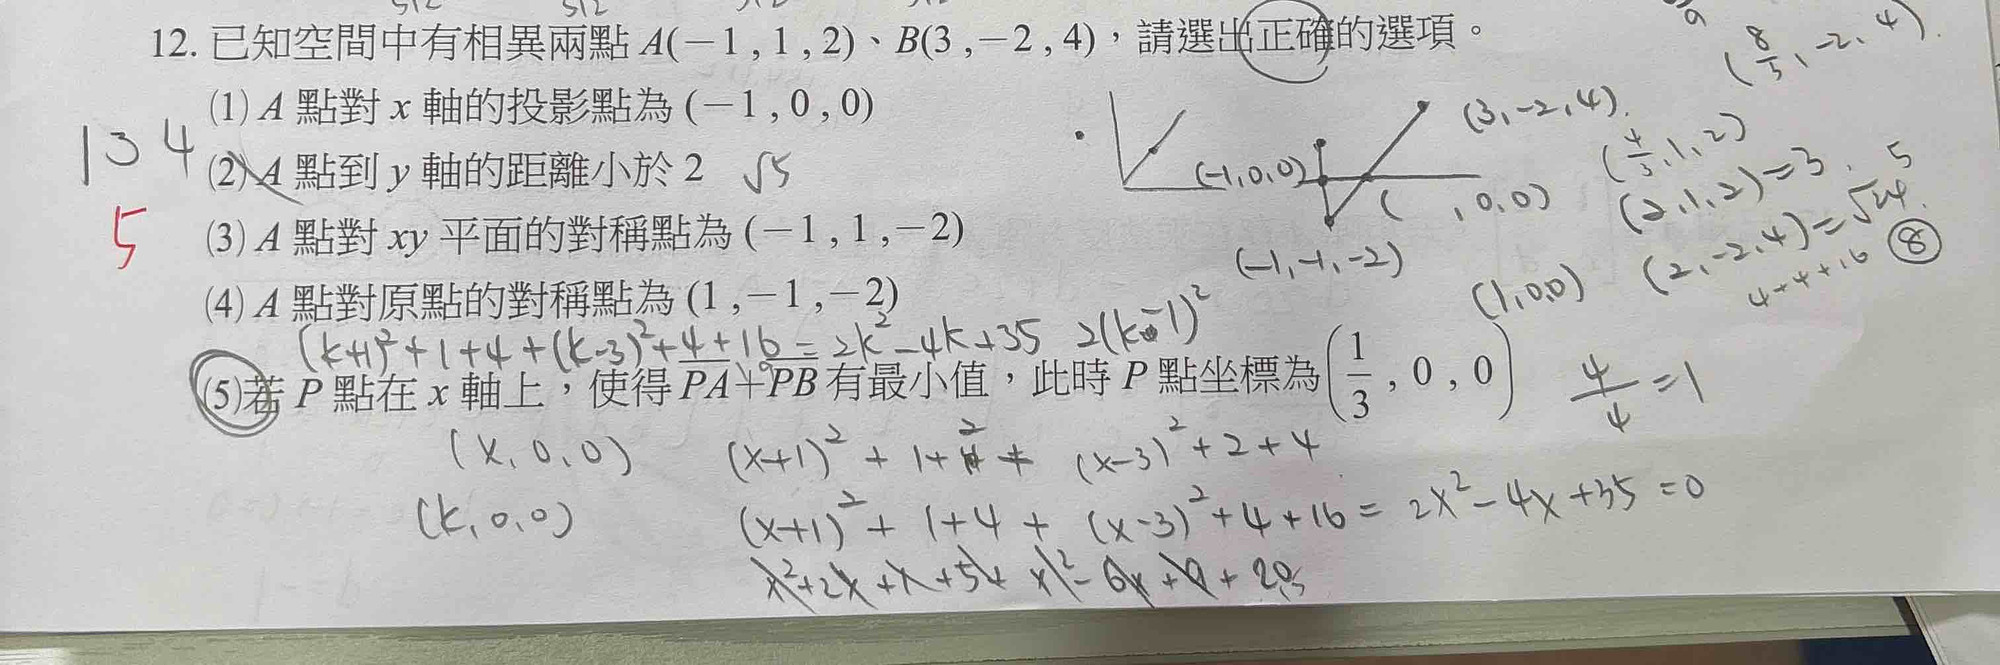 12. 已知空間中有相異兩點 A(−1 , 1 , 2)、B(3 , −2 , 4)，請選出正確的選項。
(1) A 點對 x 軸的投影點為 (−1 , 0 , 0)
(2) A 點到 y 軸的距離小於 2 √5
(3) A 點對 xy 平面的對稱點為 (−1 , 1 , −2)
(4) A 點對原點的對稱點為 (1 , −1 , −2)
(k+1)²+1+4+(k-3)²+4+16=2k²-4k+35 2(k-1)²
(5) 若 P 點在 x 軸上，使得 PA+PB 有最小值，此時 P 點坐標為 (1/3 , 0 , 0)
134
5
(x, 0, 0) (x+1)² + 1+ (x-3)² +2+4
(k, 0, 0) (x+1)² + 1+4 + (x-3)² +4+16 = 2x²-4x+35 =0
(3, -2, 4)
(-1, 0, 0)
( , 0, 0)
(-1, -1, -2)
(8/3, -2, 4)
(4/3, 1, 2)
(2, 1, 2)=3 5
(1, 0, 0) (2, -2, 4)=√24
4+4+16 ⑧
4/4 =1